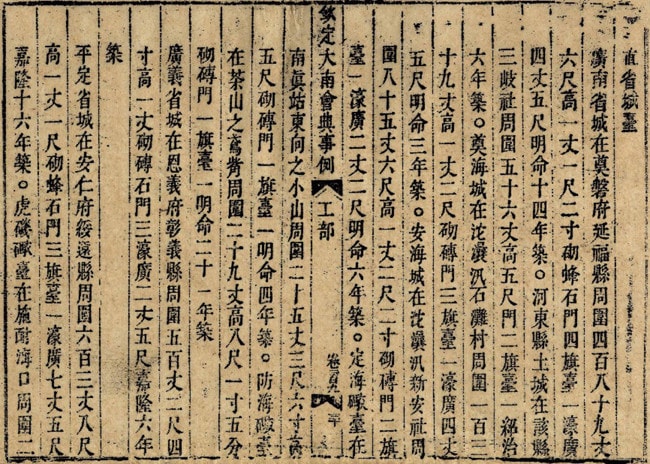 直省城臺
廣南省城在奠磐府延福縣周圍四百八十九丈
六尺高一丈一尺二寸砌蜂石門四旗臺一濠廣
四丈五尺明命十四年築。河東縣土城在該縣
三歧社周圍五十六丈高五尺門二旗臺一紹治
六年築。奠海城在沱㶞汛石灘村周圍一百三
十九丈高一丈二尺砌磚門三旗臺一濠廣四丈
五尺明命三年築。安海城在沱㶞汛新安社周
圍八十五丈六尺高一丈二尺二寸砌磚門二旗
臺一濠廣二丈二尺明命六年築。定海礮臺在
欽定大南會典事例 工部
南眞站東向之小山周圍二十五丈三尺六寸高
五尺砌磚門一旗臺一明命四年築。防海礮臺
在茶山之鳶觜周圍二十九丈高八尺一寸五分
砌磚門一旗臺一明命二十一年築
廣義省城在思義府彰義縣周圍五百丈二尺四
寸高一丈砌磚石門三濠廣二丈五尺嘉隆六年
築
平定省城在安仁府綏遠縣周圍六百三丈八尺
高一丈一尺砌蜂石門三旗臺一濠廣七丈五尺
嘉隆十六年築。虎磯礮臺在施耐海口周圍二